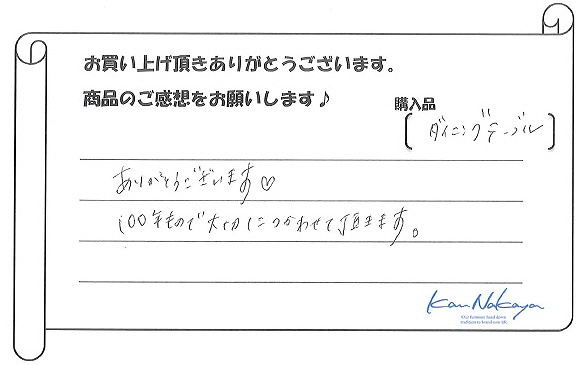 お買い上げ頂きありがとうございます。
商品のご感想をお願いします♪
購入品
[ダイニングテーブル]
ありがとうございます♡
100年もので大切につかわせて頂きます。
Kan Nakaya